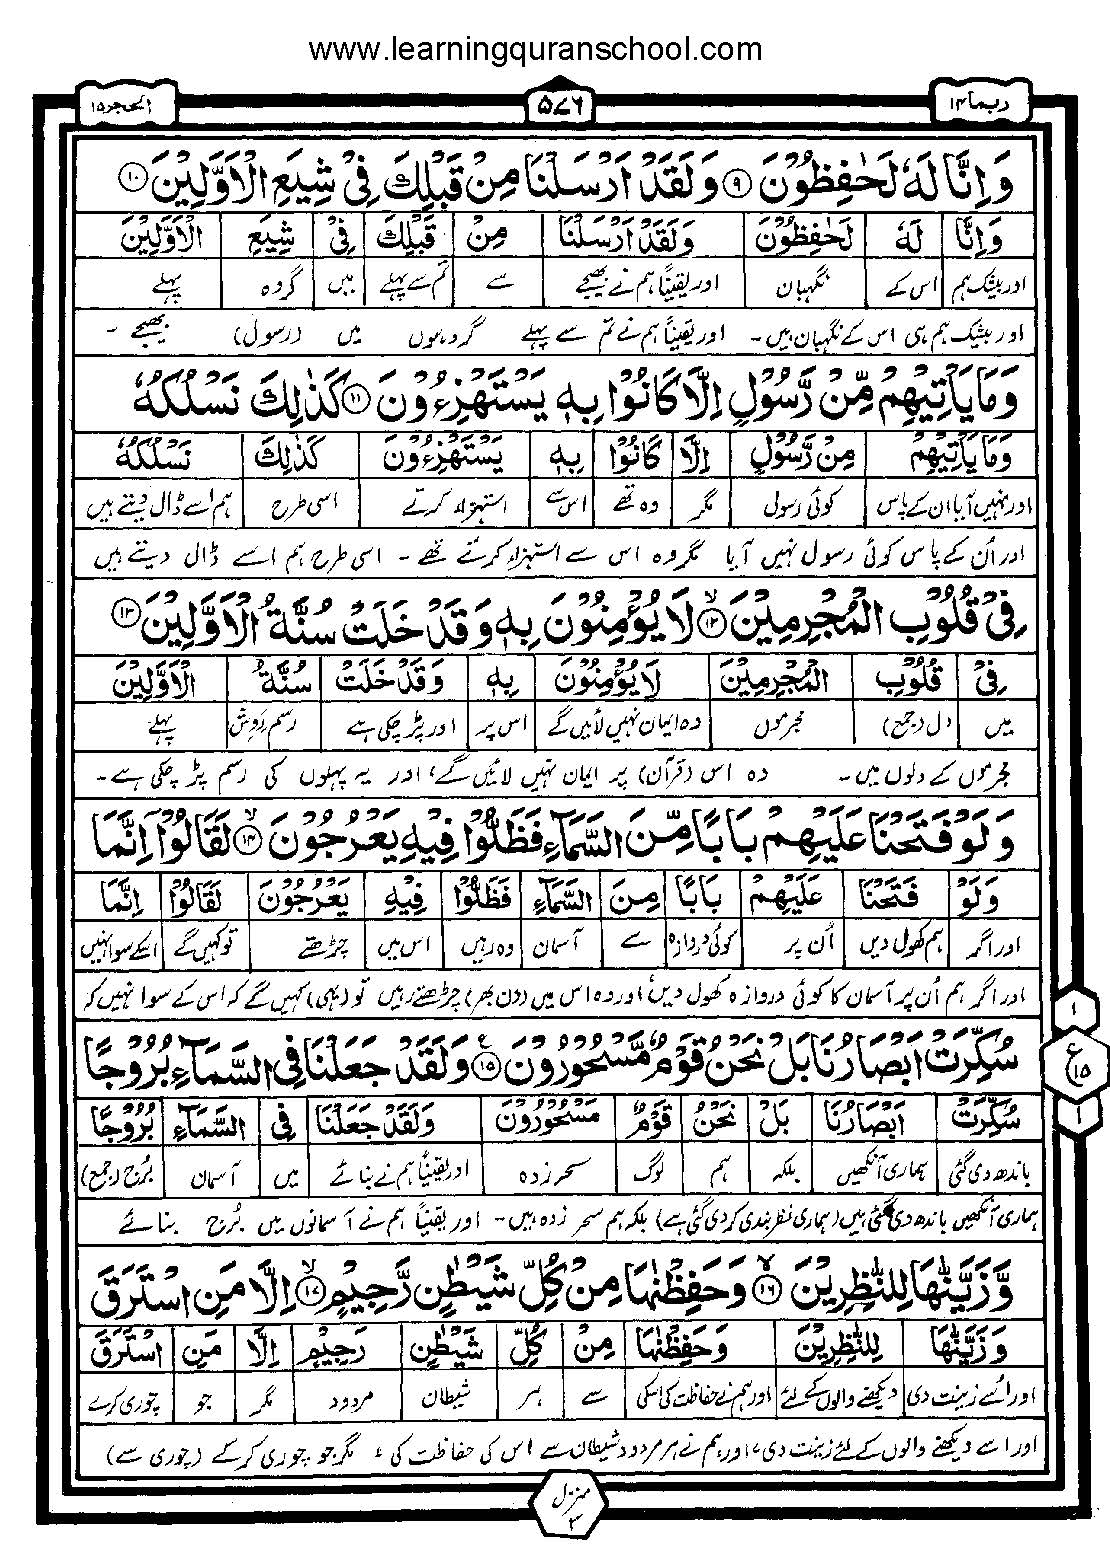 www.learningquranschool.com
ربما ۱۴
۵۷۶
الحجر ۱۵
وَاِنَّا لَهٗ لَحٰفِظُوْنَ ۹ وَلَقَدْ اَرْسَلْنَا مِنْ قَبْلِكَ فِیْ شِیَعِ الْاَوَّلِیْنَ ۱۰
وَاِنَّا لَهٗ لَحٰفِظُوْنَ وَلَقَدْ اَرْسَلْنَا مِنْ قَبْلِكَ فِیْ شِیَعِ الْاَوَّلِیْنَ
اور بیشک ہم اس کے نگہبان اور یقیناً ہم نے بھیجے سے تم سے پہلے میں گروہ پہلے
اور بیشک ہم ہی اس کے نگہبان ہیں۔ اور یقیناً ہم نے تم سے پہلے گروہوں میں (رسول) بھیجے۔
وَمَا یَاْتِیْهِمْ مِّنْ رَّسُوْلٍ اِلَّا كَانُوْا بِهٖ یَسْتَهْزِءُوْنَ ۱۱ كَذٰلِكَ نَسْلُكُهٗ
وَمَا یَاْتِیْهِمْ مِنْ رَّسُوْلٍ اِلَّا كَانُوْا بِهٖ یَسْتَهْزِءُوْنَ كَذٰلِكَ نَسْلُكُهٗ
اور نہیں آیا ان کے پاس کوئی رسول مگر وہ تھے اس سے استہزاء کرتے اسی طرح ہم اسے ڈال دیتے ہیں
اور اُن کے پاس کوئی رسول نہیں آیا مگر وہ اس سے استہزاء کرتے تھے۔ اسی طرح ہم اسے ڈال دیتے ہیں
فِیْ قُلُوْبِ الْمُجْرِمِیْنَ ۱۲ لَا یُؤْمِنُوْنَ بِهٖ وَقَدْ خَلَتْ سُنَّةُ الْاَوَّلِیْنَ ۱۳
فِیْ قُلُوْبِ الْمُجْرِمِیْنَ لَا یُؤْمِنُوْنَ بِهٖ وَقَدْ خَلَتْ سُنَّةُ الْاَوَّلِیْنَ
میں دل (جمع) مجرموں وہ ایمان نہیں لائیں گے اس پر اور پڑ چکی ہے رسم روش پہلے
مجرموں کے دلوں میں۔ وہ اس (قرآن) پر ایمان نہیں لائیں گے، اور یہ پہلوں کی رسم پڑ چکی ہے۔
وَلَوْ فَتَحْنَا عَلَیْهِمْ بَابًا مِّنَ السَّمَآءِ فَظَلُّوْا فِیْهِ یَعْرُجُوْنَ ۱۴ لَقَالُوْۤا اِنَّمَا
وَلَوْ فَتَحْنَا عَلَیْهِمْ بَابًا مِنَ السَّمَآءِ فَظَلُّوْا فِیْهِ یَعْرُجُوْنَ لَقَالُوْا اِنَّمَا
اور اگر ہم کھول دیں اُن پر کوئی دروازہ سے آسمان وہ رہیں اس میں چڑھتے تو کہیں گے اسکے سوا نہیں
اور اگر ہم اُن پر آسمان کا کوئی دروازہ کھول دیں اور وہ اس میں (دن بھر) چڑھتے رہیں تو (یہی) کہیں گے کہ اس کے سوا نہیں کہ
۱
ع
۱۵
۱
سُكِّرَتْ اَبْصَارُنَا بَلْ نَحْنُ قَوْمٌ مَّسْحُوْرُوْنَ ۱۵ ع وَلَقَدْ جَعَلْنَا فِی السَّمَآءِ بُرُوْجًا
سُكِّرَتْ اَبْصَارُنَا بَلْ نَحْنُ قَوْمٌ مَسْحُوْرُوْنَ وَلَقَدْ جَعَلْنَا فِی السَّمَآءِ بُرُوْجًا
باندھ دی گئی ہماری آنکھیں بلکہ ہم لوگ سحر زدہ اور یقیناً ہم نے بنائے میں آسمان بُرج (جمع)
ہماری آنکھیں باندھ دی گئی ہیں (ہماری نظر بندی کر دی گئی ہے) بلکہ ہم سحر زدہ ہیں۔ اور یقیناً ہم نے آسمانوں میں بُرج بنائے
وَّزَیَّنّٰهَا لِلنّٰظِرِیْنَ ۱۶ وَحَفِظْنٰهَا مِنْ كُلِّ شَیْطٰنٍ رَّجِیْمٍ ۱۷ اِلَّا مَنِ اسْتَرَقَ
وَزَیَّنّٰهَا لِلنّٰظِرِیْنَ وَحَفِظْنٰهَا مِنْ كُلِّ شَیْطٰنٍ رَجِیْمٍ اِلَّا مَنِ اسْتَرَقَ
اور اُسے زینت دی دیکھنے والوں کے لئے اور ہم نے حفاظت کی اسکی سے ہر شیطان مردود مگر جو چوری کرے
اور اسے دیکھنے والوں کے لئے زینت دی، اور ہم نے ہر مردود شیطان سے اس کی حفاظت کی، مگر جو چوری کر کے (چوری سے)
منزل ۳